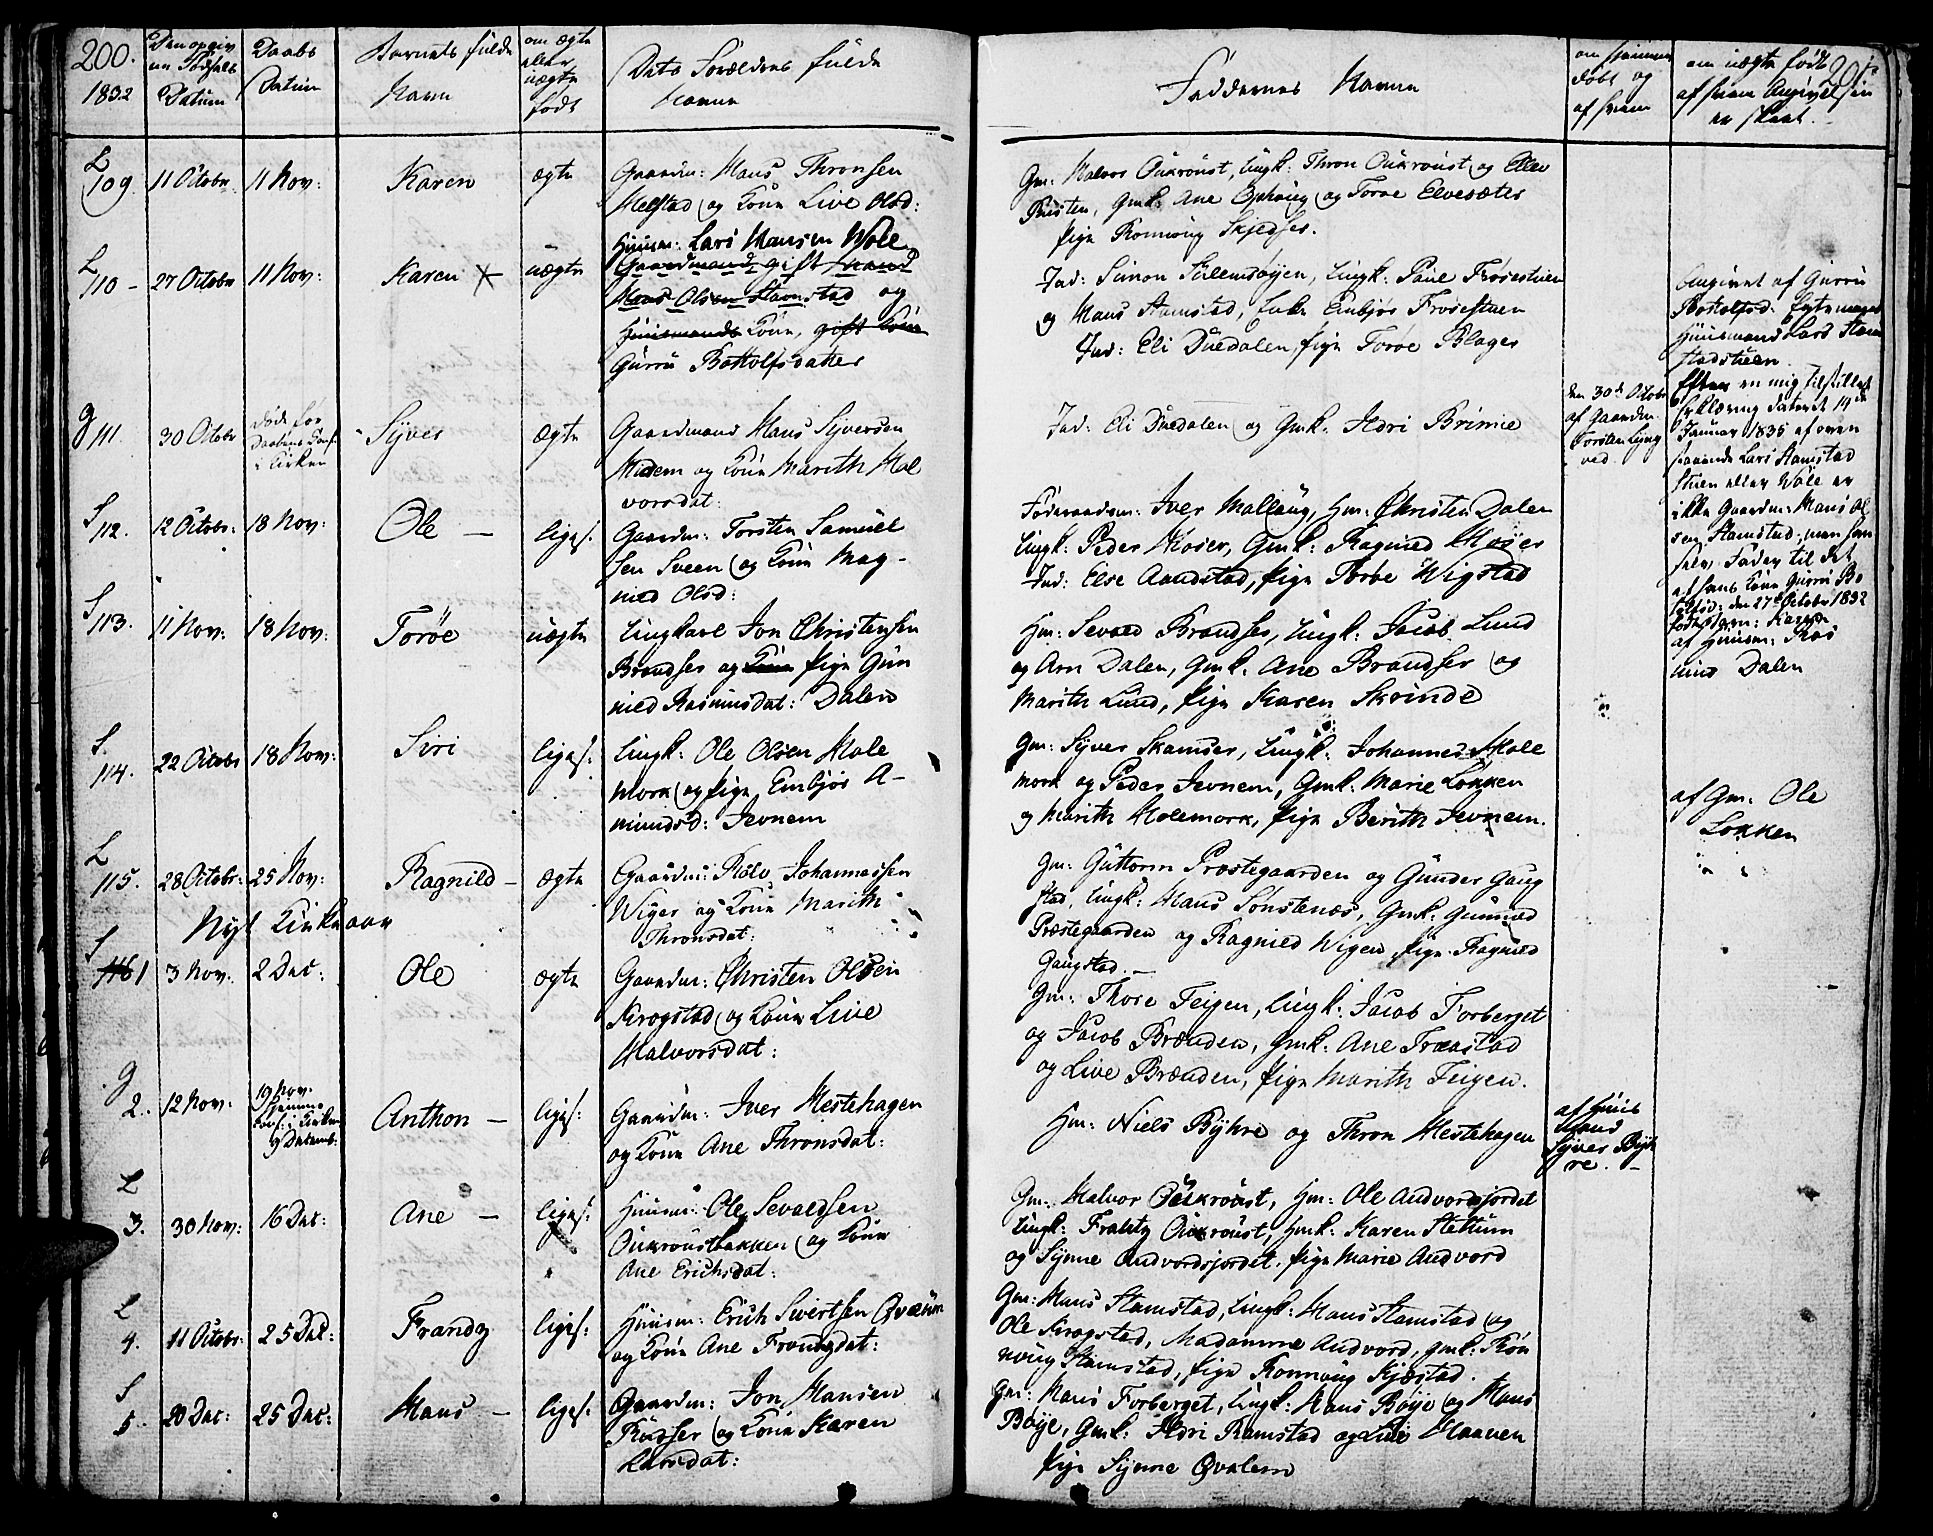 200.
1832
Datum
Daabs
Datum
Barnets fulde
Navn
om ægte
eller
uægte
født
Dets Forældres fulde
Navne
Faddernes Navne
om hjemme
døbt og
af hvem
om uægte født
af hvem Angivelsen
er skeet.
201.
L
109.
11 Octobr
11 Nov:
Karen
ægte
Gaardm: Hans Thronsen
Melstad og Kone Live Olsd:
Gm: Halvor Oukroust, Ungk: Thron Oukroust og Elev
Rusten, Gmk: Ane Ophoug og Toroe Elvesæter
Pige Romoug Skjedser.
L
110 -
27 Octobr
11 Nov:
Karen
uægte
Huusm: Lars Hansen Wole
Gaardmand, gift
Hans Olsen Stamstad og
Huusmands Kone, gift Kone
Gurru Botholfsdatter
Fad: Simon Sulemsøyen, Ungk: Paul Frøsestuen
og Hans Stamstad, Enke Embjør Frøsestuen
Fad: Eli Duedalen, Pige Toroe Blager
Angivet af Gurru
Botolfsd.
Huusmand Lars Stam
stadstuen.
Efter en mig tilstillet
Erklæring dateret 14de
Januar 1835 af oven
staaende Lars Stamstad
stuen eller Wole er
ikke Gaardm: Hans Ol
sen Stamstad, men han
selv Fader til det
af hans Kone Gurru Bo
tolfsd: den 27de October 1832
fødte Barn: Karen
G
111.
30 Octobr
Døde før
i Kirken
Syver
ægte
Gaardmand Hans Syversen
Midem og Kone Marith Hal
vorsdat:
Fad: Eli Duedalen og Gmk. Idri Brimie
den 30te Octobr
af Gaardm.
Torsten Lyng
ved.
S
112.
12 Octobr:
18 Nov:
Ole -
liges:
Gaardm: Torsten Samuel
sen Sveen og Kone Mag-
nild Olsd:
Føderaadsm: Iver Mallaug, Hm: Christen Dalen
Ungk: Peder Moser, Gmk: Ragnild Moser
Fad: Else Aandstad, Pige Toroe Wigstad
S
113.
11 Nov:
18 Nov:
Toroe
uægte
Ungkarl Jon Christensen
Brandser og Kone Pige Gun
nild Rasmusdat: Dalen
Hm: Sevald Brandser, Ungk: Jacob Lund
og Arn Dalen, Gmk. Ane Brandser og
Marith Lund, Pige Karen Skrinde
af Huusm: Ras
mus Dalen
S.
114.
22 Octobr
18 Nov:
Siri
liges:
Ungk: Ole Olsen Hole
mork og Pige Embjør A-
mundsd: Jevnem
Gm: Syver Skamsar, Ungk: Johannes Hole
mork og Peder Jevnem, Gmk: Marie Løkken
og Marith Holemork, Pige Berith Jevnem.
af Gm: Ole
Løkken
L
115.
28 Octobr:
25 Nov:
Ragnild -
ægte
Gaardm: Rolv Johannessen
Wiger og Kone Marith
Thronsdat:
Gm: Guttorm Prestegaarden og Gunder Gaug
stad, Ungk: Hans Sønstenæs, Gmk: Gunnild
Præstegaarden og Ragnild Wigen, Pige Ragnild
Gaugstad. -
Nyt Kirkeaar
S
116 1
3 Nov.
2 Dec:
Ole
ægte
Gaardm: Christen Olsen
Krogstad og Kone Live
Halvorsdat:
Gm: Thore Teigen, Ungk: Jacob Forberget
og Jacob Brænden, Gmk: Ane Frandstad
og Live Brænden, Pige Marith Teigen.
G
2.
12 Nov:
19 Nov.
hjemme
i Kirken
9 Decemb:
Anthon -
liges:
Gaardm: Iver Hestehagen
og Kone Ane Thronsdat:
Hm: Niels Byhre og Thron Hestehagen
af Huus
mand
Syver Byh
re. -
L
3.
30 Nov:
16 Dec:
Ane -
liges:
Huusm: Ole Sevaldsen
Oukroustbakken og Kone
Ane Erichsdat:
Gm: Halvor Oukroust, Hm: Ole Andvordsjordet
Ungk: Frantz Oukroust, Hmk: Karen Stettum
og Synne Andvordsjordet, Pige Marie Andvord
L
4.
11 Octobr:
25 Dec:
Frandz
liges:
Huusm: Erich Sivertsen Qværn
og Kone Ane Frandzdat:
Gm: Hans Stamstad, Ungk: Hans Stamstad og
Ole Krogstad, Madamme Andvord, Gmk: Røn
noug Stamstad, Pige Ronnoug Kjæstad.
S
5.
20 Dec:
25 Dec:
Hans -
liges:
Gaardm: Jon Hansen
Rudser og Kone Karen
Larsdat:
Gm: Hans Forberget, Ungk: Hans Bøye og Hans
Bøye, Gmk: Idri Ramstad og Live Haaven
Pige Synne Qvalem